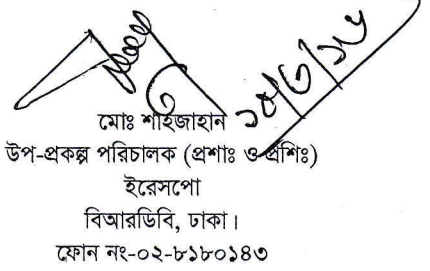 মোঃ শাহজাহান
উপ-প্রকল্প পরিচালক (প্রশাঃ ও প্রশিঃ)
ইরেসপো
বিআরডিবি, ঢাকা।
ফোন নং-০২-৮১৮০১৪৩